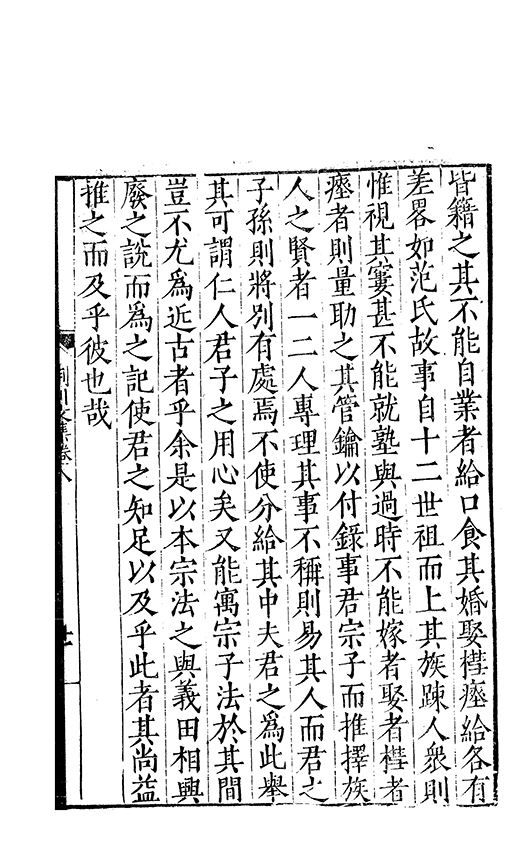 皆籍之其不能自業者給口食其婚娶槥瘞給各有
差畧如范氏故事自十二世祖而上其族踈人衆則
惟視其窶甚不能就塾與過時不能嫁者娶者槥者
瘞者則量助之其管鑰以付錄事君宗子而推擇族
人之賢者一二人專理其事不稱則易其人而君之
子孫則將别有處焉不使分給其中夫君之爲此舉
其可謂仁人君子之用心矣又能寓宗子法於其間
豈不尤爲近古者乎余是以本宗法之與義田相興
廢之說而爲之記使君之知足以及乎此者其尚益
推之而及乎彼也哉
荆川文集卷八